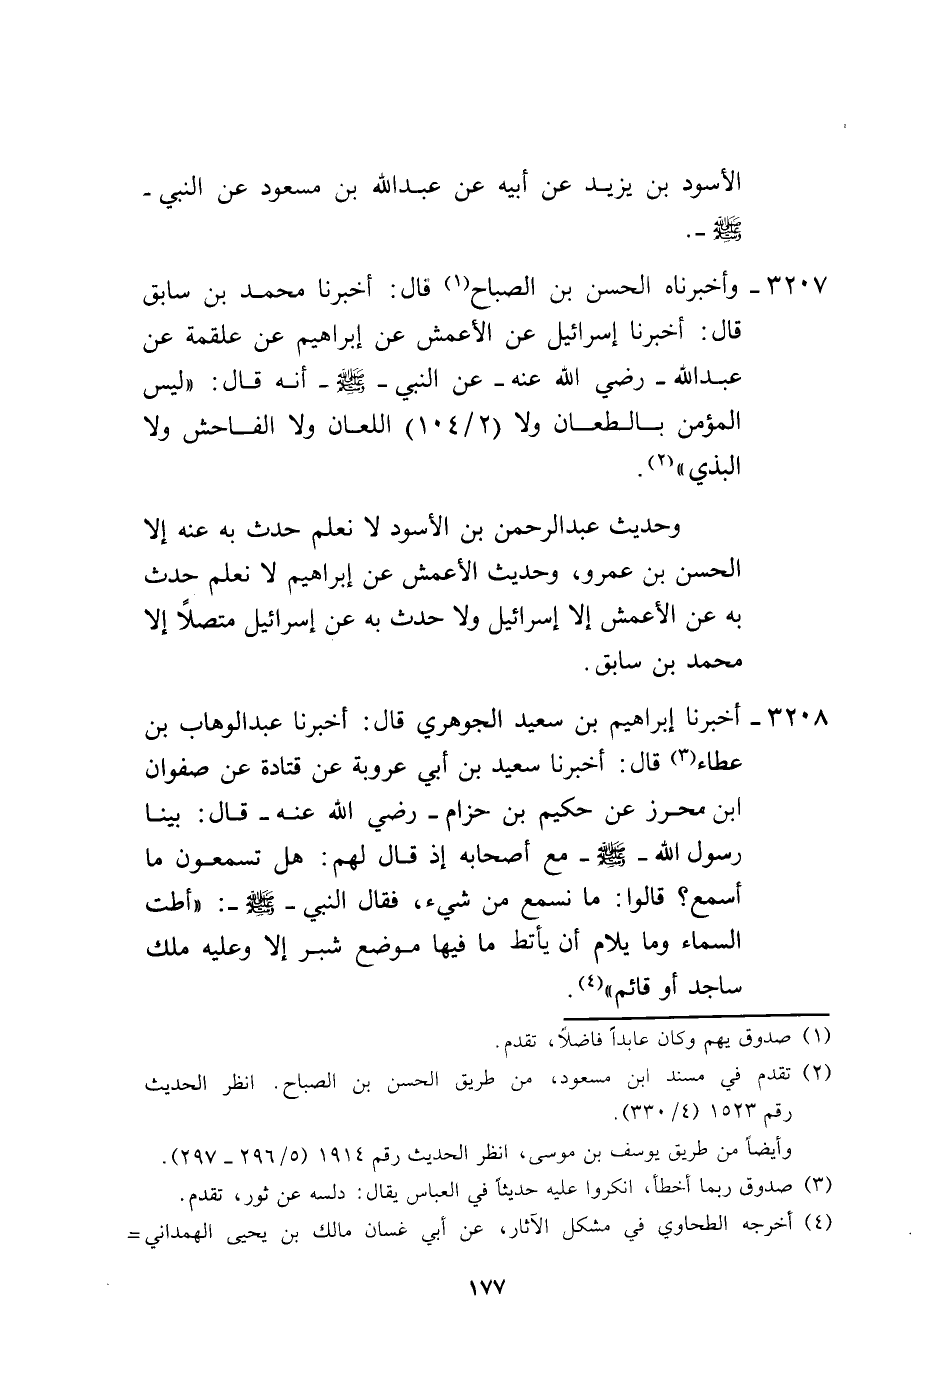 الأسود بن يزيد عن أبيه عن عبدالله بن مسعود عن النبي -
ﷺ -.
٣٢٠٧ - وأخبرناه الحسن بن الصباح(١) قال: أخبرنا محمد بن سابق
قال: أخبرنا إسرائيل عن الأعمش عن إبراهيم عن علقمة عن
عبدالله - رضي الله عنه - عن النبي - ﷺ - أنه قال: «ليس
المؤمن بالطعان ولا (١٠٤/٢) اللعان ولا الفاحش ولا
البذي»(٢).
وحديث عبدالرحمن بن الأسود لا نعلم حدث به عنه إلا
الحسن بن عمرو، وحديث الأعمش عن إبراهيم لا نعلم حدث
به عن الأعمش إلا إسرائيل ولا حدث به عن إسرائيل متصلاً إلا
محمد بن سابق.
٣٢٠٨ - أخبرنا إبراهيم بن سعيد الجوهري قال: أخبرنا عبدالوهاب بن
عطاء(٣) قال: أخبرنا سعيد بن أبي عروبة عن قتادة عن صفوان
ابن محرز عن حكيم بن حزام - رضي الله عنه - قال: بينا
رسول الله - ﷺ - مع أصحابه إذ قال لهم: هل تسمعون ما
أسمع؟ قالوا: ما نسمع من شيء، فقال النبي - ﷺ -: «أطت
السماء وما يلام أن يأتط ما فيها موضع شبر إلا وعليه ملك
ساجد أو قائم»(٤).
(١) صدوق يهم وكان عابداً فاضلاً، تقدم.
(٢) تقدم في مسند ابن مسعود، من طريق الحسن بن الصباح. انظر الحديث
رقم ١٥٢٣ (٤/ ٣٣٠).
وأيضاً من طريق يوسف بن موسى، انظر الحديث رقم ١٩١٤ (٥/ ٢٩٦ - ٢٩٧).
(٣) صدوق ربما أخطأ، انكروا عليه حديثاً في العباس يقال: دلسه عن ثور، تقدم.
(٤) أخرجه الطحاوي في مشكل الآثار، عن أبي غسان مالك بن يحيى الهمداني =
١٧٧